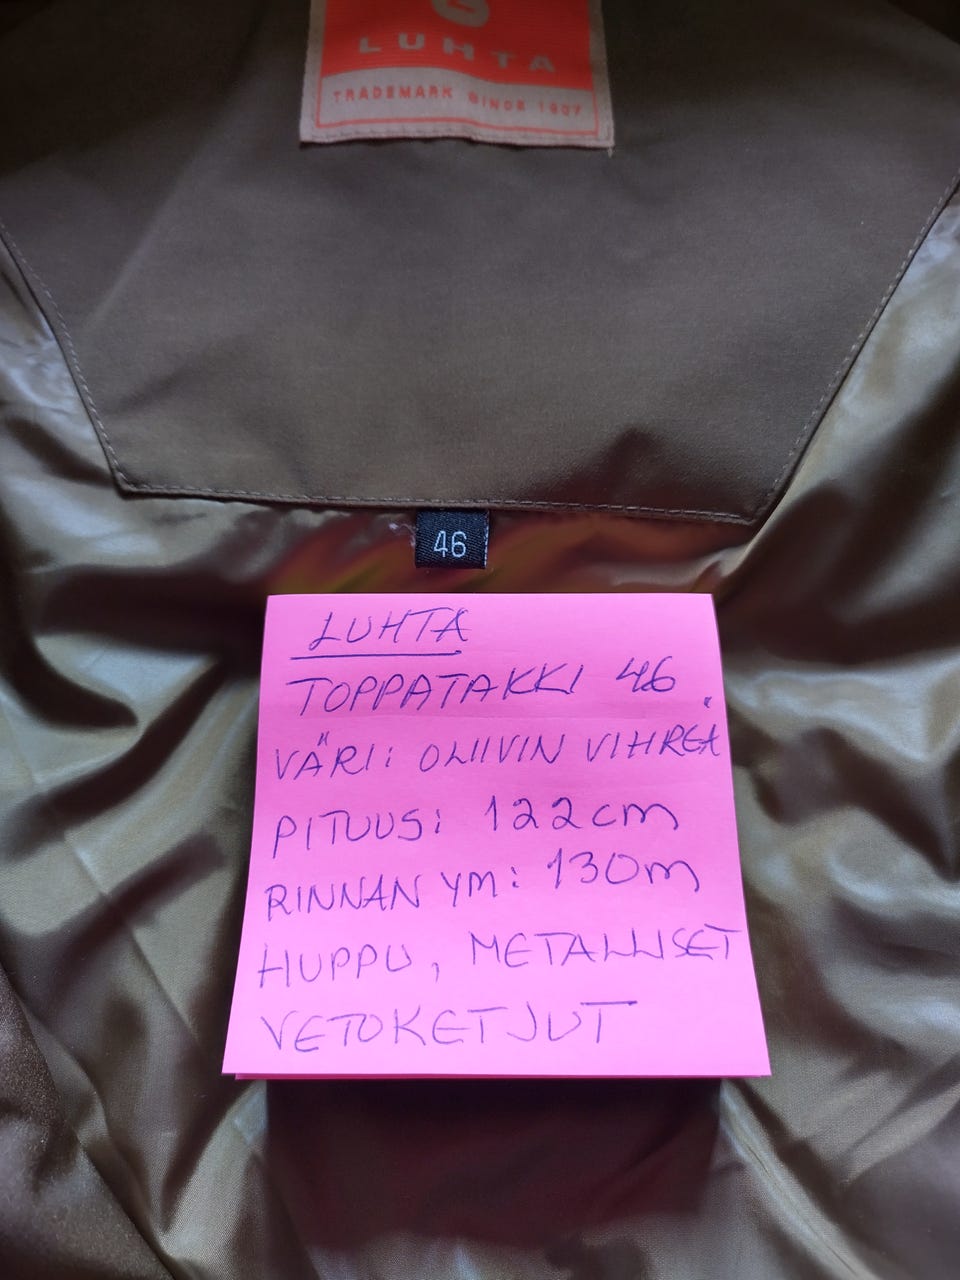 LUHTA
TRADEMARK SINCE 1907
46
LUHTA
TOPPATAKKI 46
VÄRI: OLIIVIN VIHREÄ
PITUUS: 122cm
RINNAN YM: 130m
HUPPU, METALLISET
VETOKETJUT